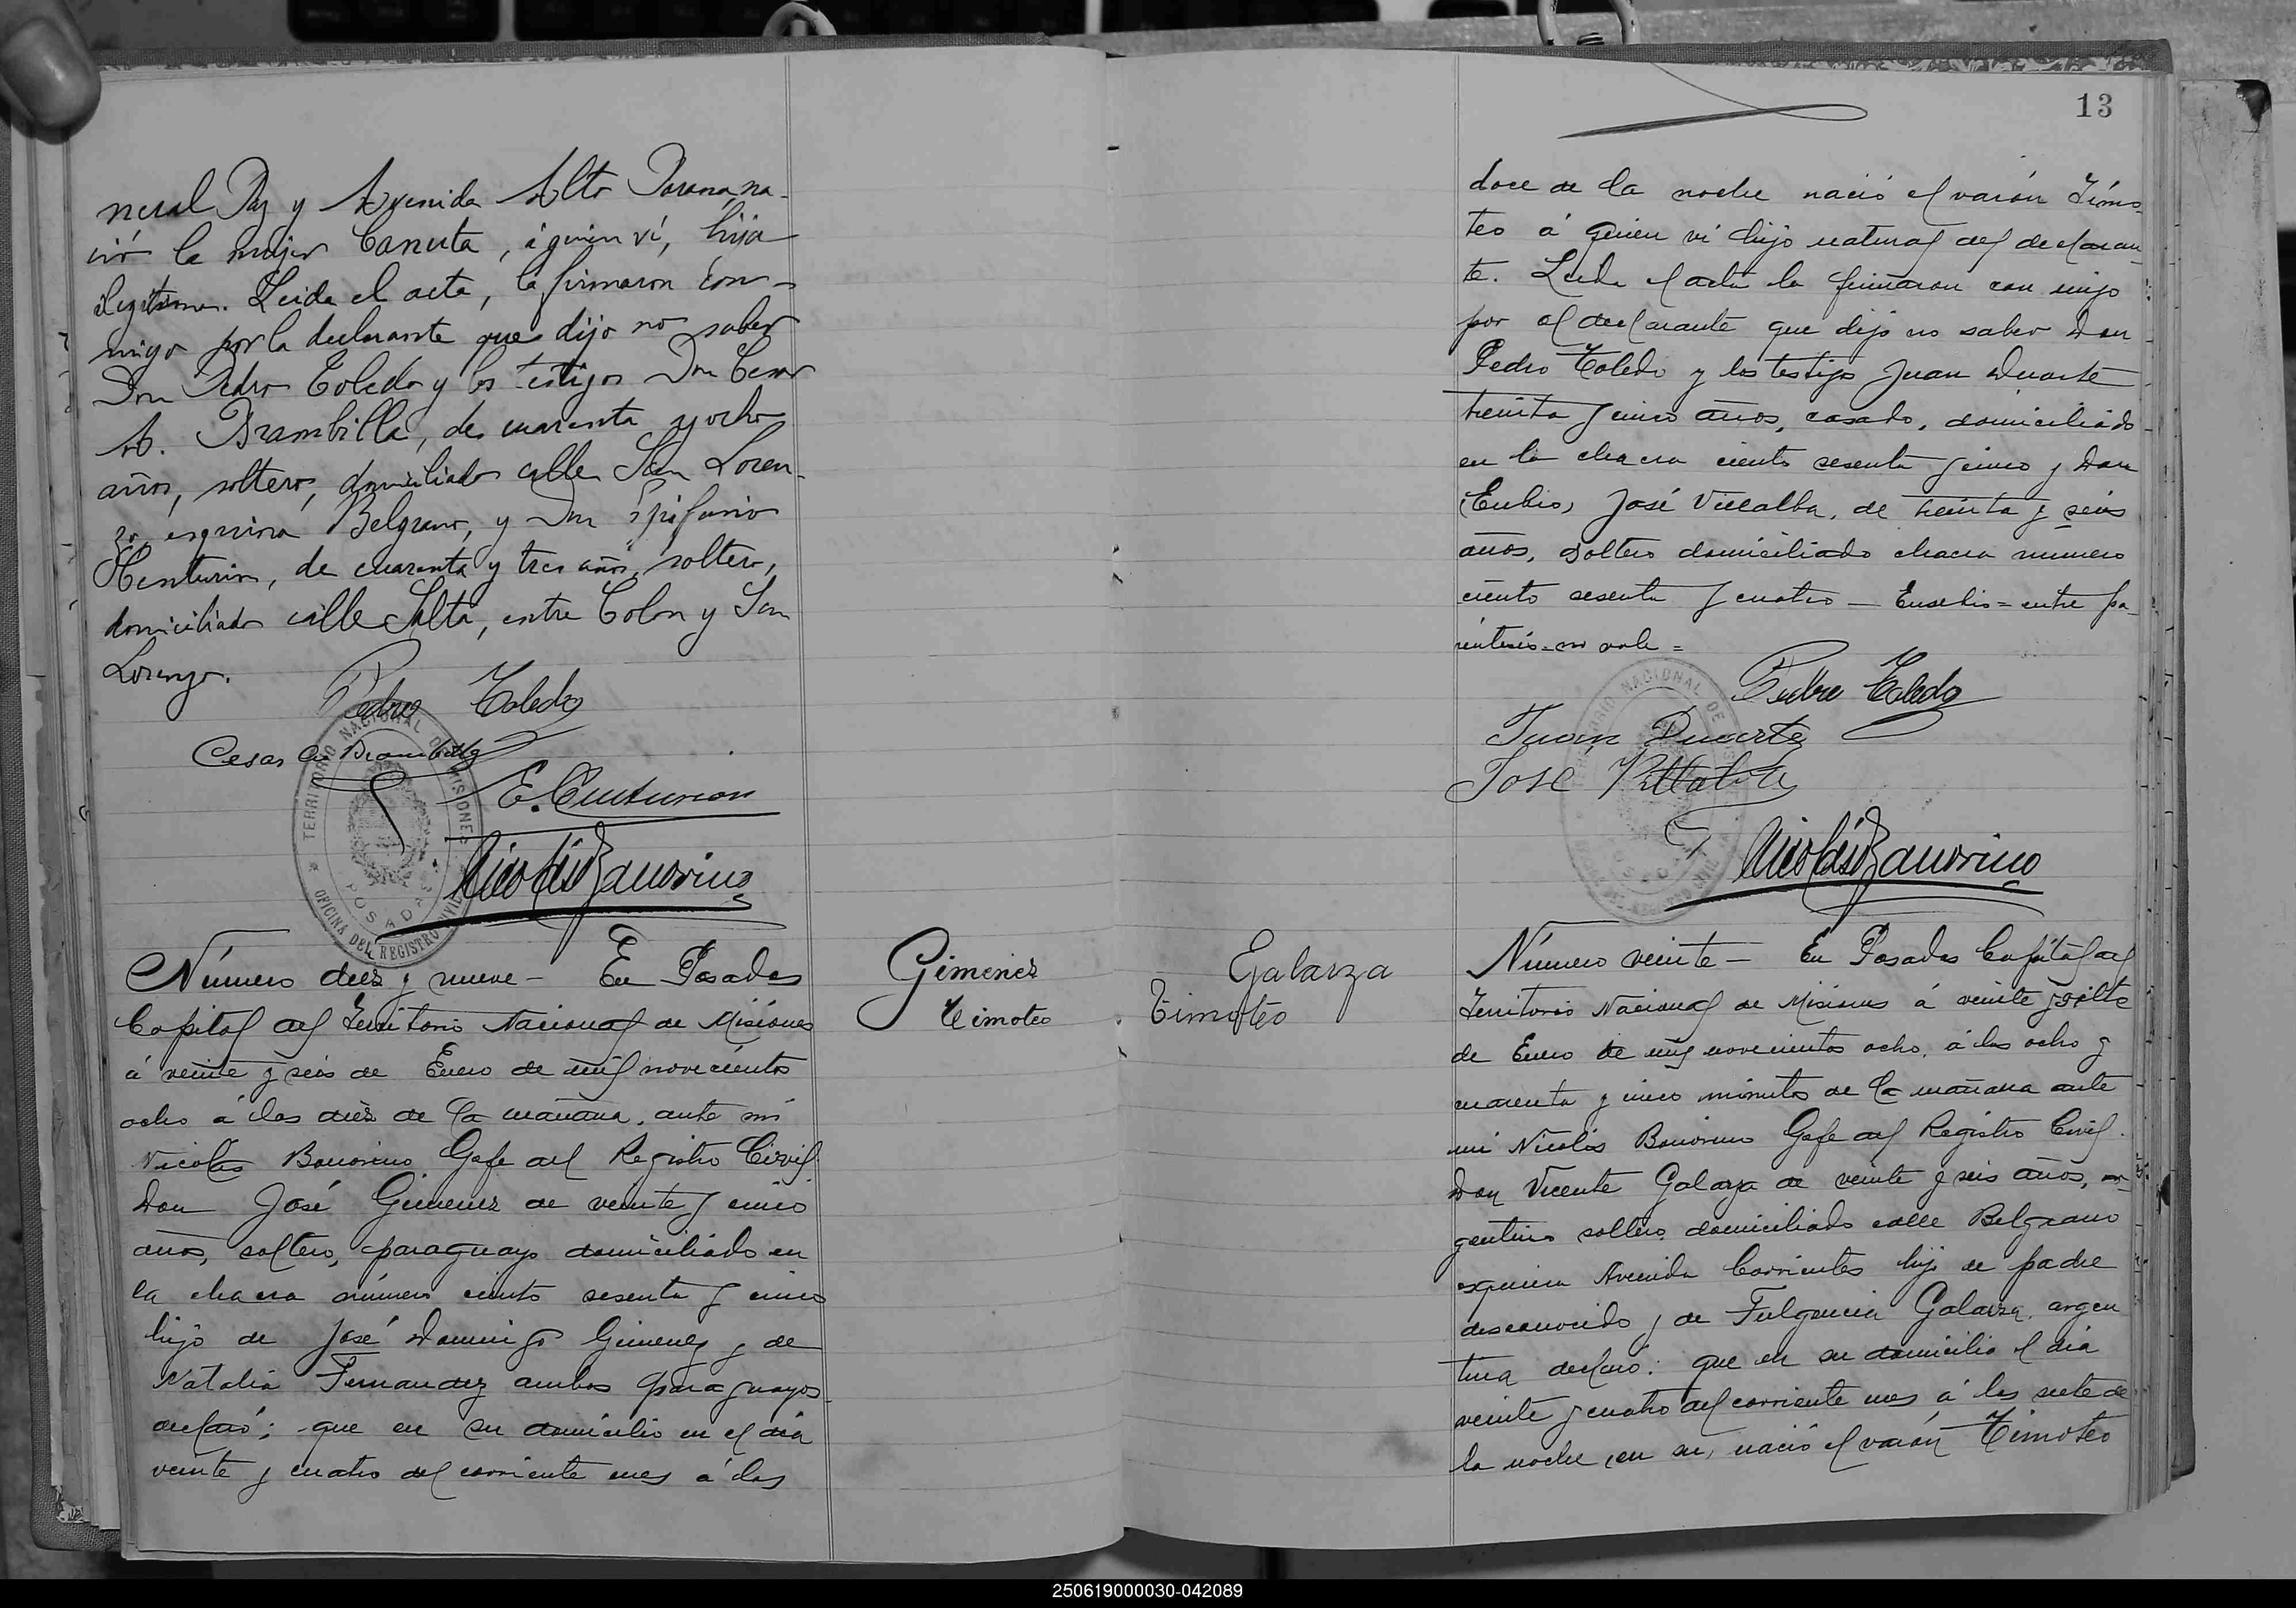 neral Paz y Avenida Alto Parana, na-
ció la mujer Canuta, á quien ví, hija
ilegitima. Leida el acta, la firmaron con-
migo por la declarante que dijo no saber
Don Pedro Toledo y los testigos Don Cesar
A. Brambilla, de cuarenta y ocho
años, soltero, domiciliado calle San Loren-
zo, esquina Belgrano, y Don Epifanio
Centurion, de cuarenta y tres años, soltero,
domiciliado calle Salta, entre Colon y San
Lorenzo.
Pedro Toledo
Cesar A. Brambilla
E. Centurion
Nicolás Bonorino
TERRITORIO NACIONAL DE MISIONES
OFICINA DEL REGISTRO CIVIL
POSADAS
Gimenez
Timoteo
Número diez y nueve - En Posadas
Capital del Territorio Nacional de Misiones
á veinte y seis de Enero de mil novecientos
ocho á las diez de la mañana, ante mí
Nicolás Bonorino Gefe del Registro Civil.
Don José Gimenez de veinte y cinco
años, soltero, paraguayo domiciliado en
la chacra número ciento sesenta y cinco
hijo de José Domingo Gimenez y de
Natalia Fernandez ambos paraguayos
declaró; que en su domicilio en el día
veinte y cuatro del corriente mes á las
13
doce de la noche nació el varón Timo-
teo á quien ví hijo natural del declaran-
te. Leida el acta la firmaron con migo
por el declarante que dijo no saber Don
Pedro Toledo y los testigos Juan Duarte
treinta y cinco años, casado, domiciliado
en la chacra ciento sesenta y cinco y Don
José Villalba, de treinta y seis
años, soltero domiciliado chacra número
ciento sesenta y cuatro - Eusebio = entre pa-
réntesis - no vale =
Pedro Toledo
Juan Duarte
José Villalba
Nicolás Bonorino
Galarza
Timoteo
Número veinte - En Posadas Capital del
Territorio Nacional de Misiones á veinte y
de Enero de mil novecientos ocho, á las ocho y
cuarenta y cinco minutos de la mañana ante
mi Nicolás Bonorino Gefe del Registro Civil.
Don Vicente Galarza de veinte y seis años, ar-
gentino soltero, domiciliado calle Belgrano
esquina Avenida Corrientes hijo de padre
desconocido y de Fulgencia Galarza, argen
tina declaró: que en su domicilio el día
veinte y cuatro del corriente mes á las siete de
la noche, en su, nació el varón Timoteo
250619000030-042089